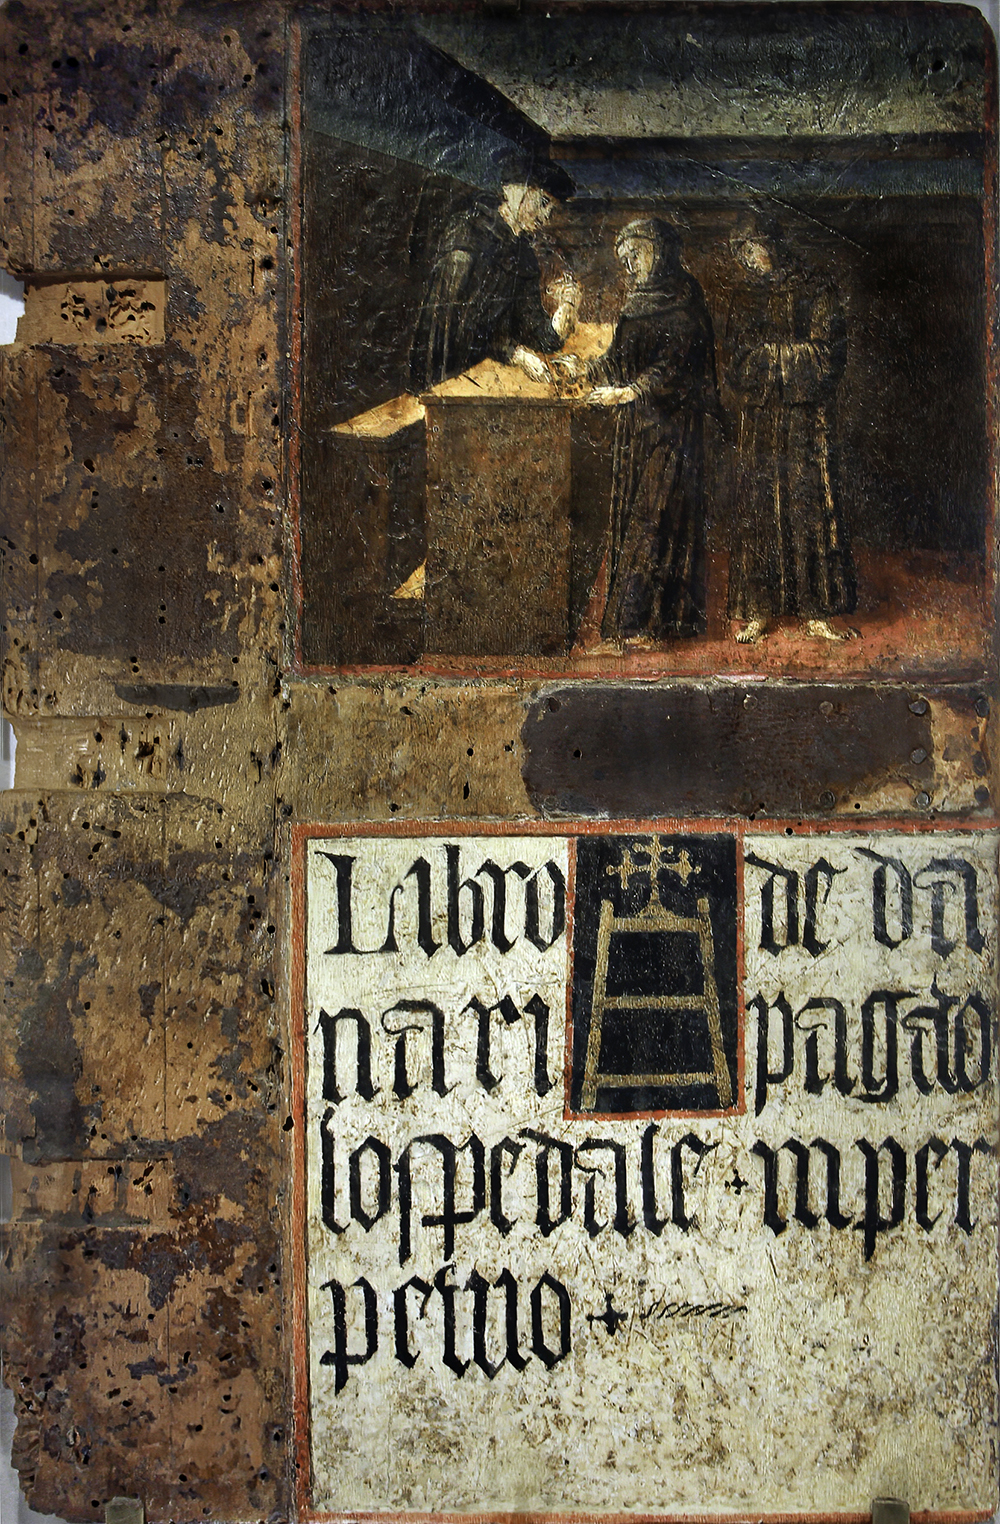 Libro de da
nari pagato
lospedale + inper
petuo +